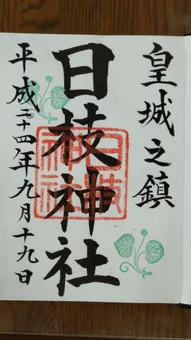 皇城之鎮
日枝神社
平成二十四年九月十九日
日枝神社